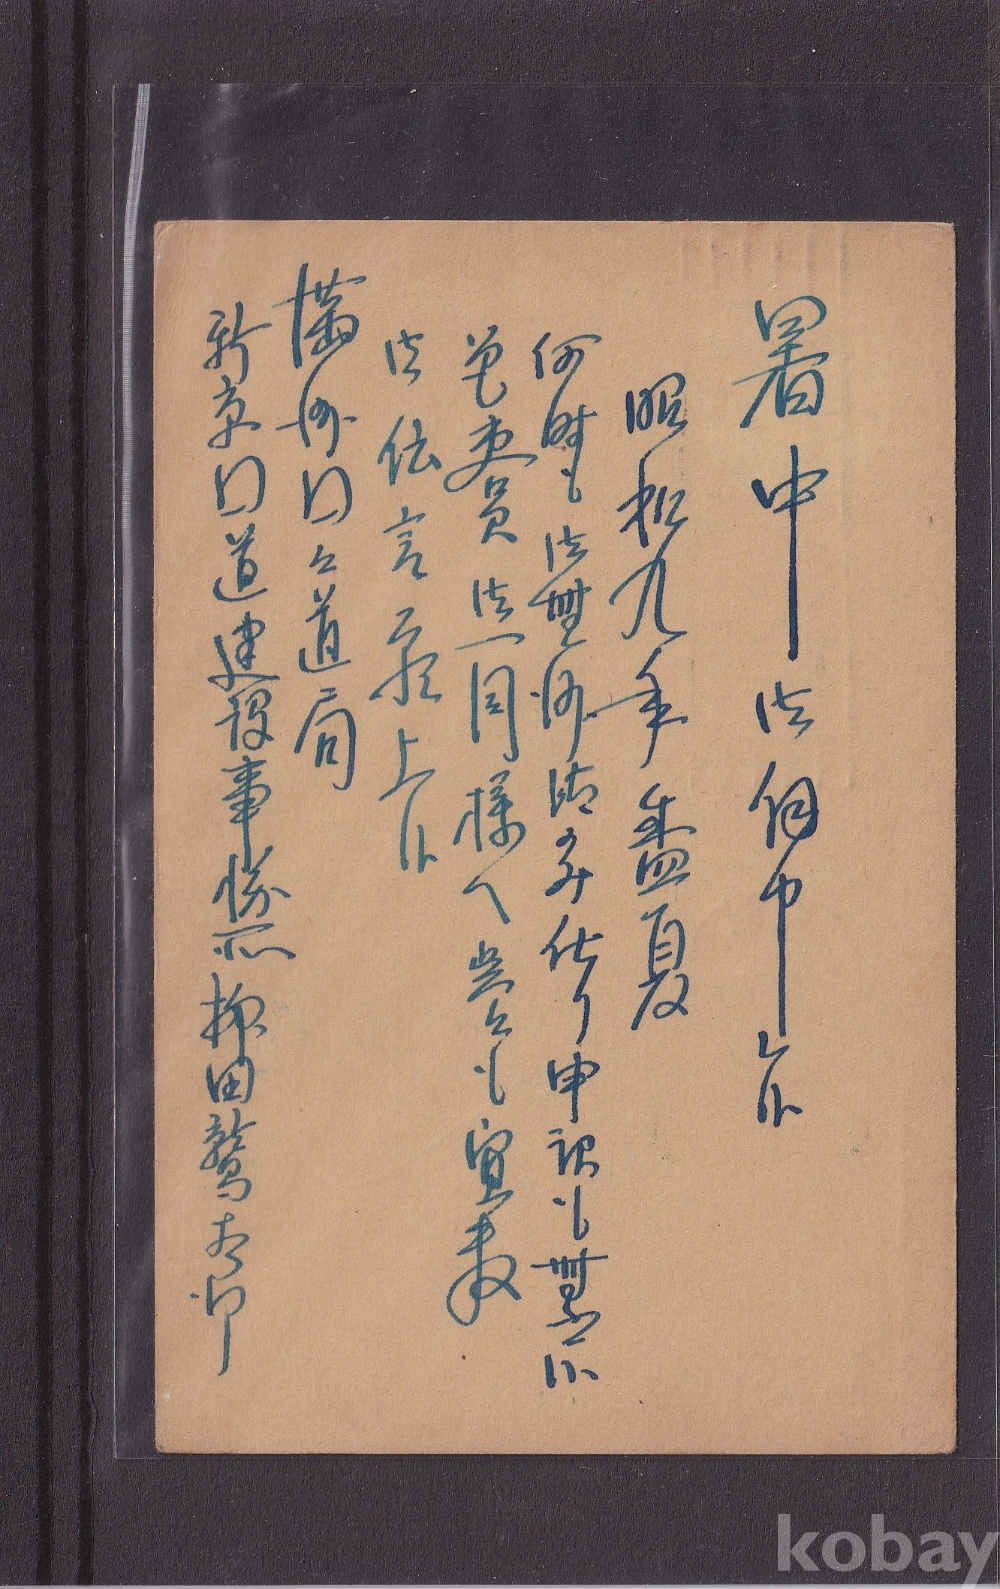 暑中御伺申上候
昭和九年盛夏
何時も御無沙汰のみ仕り申訳も無之候
曽 委員御一同様へ呉々も宜敷
御伝言願上候
満洲国々道局
新京国道建設事務所 柳田鷲太郎
kobay